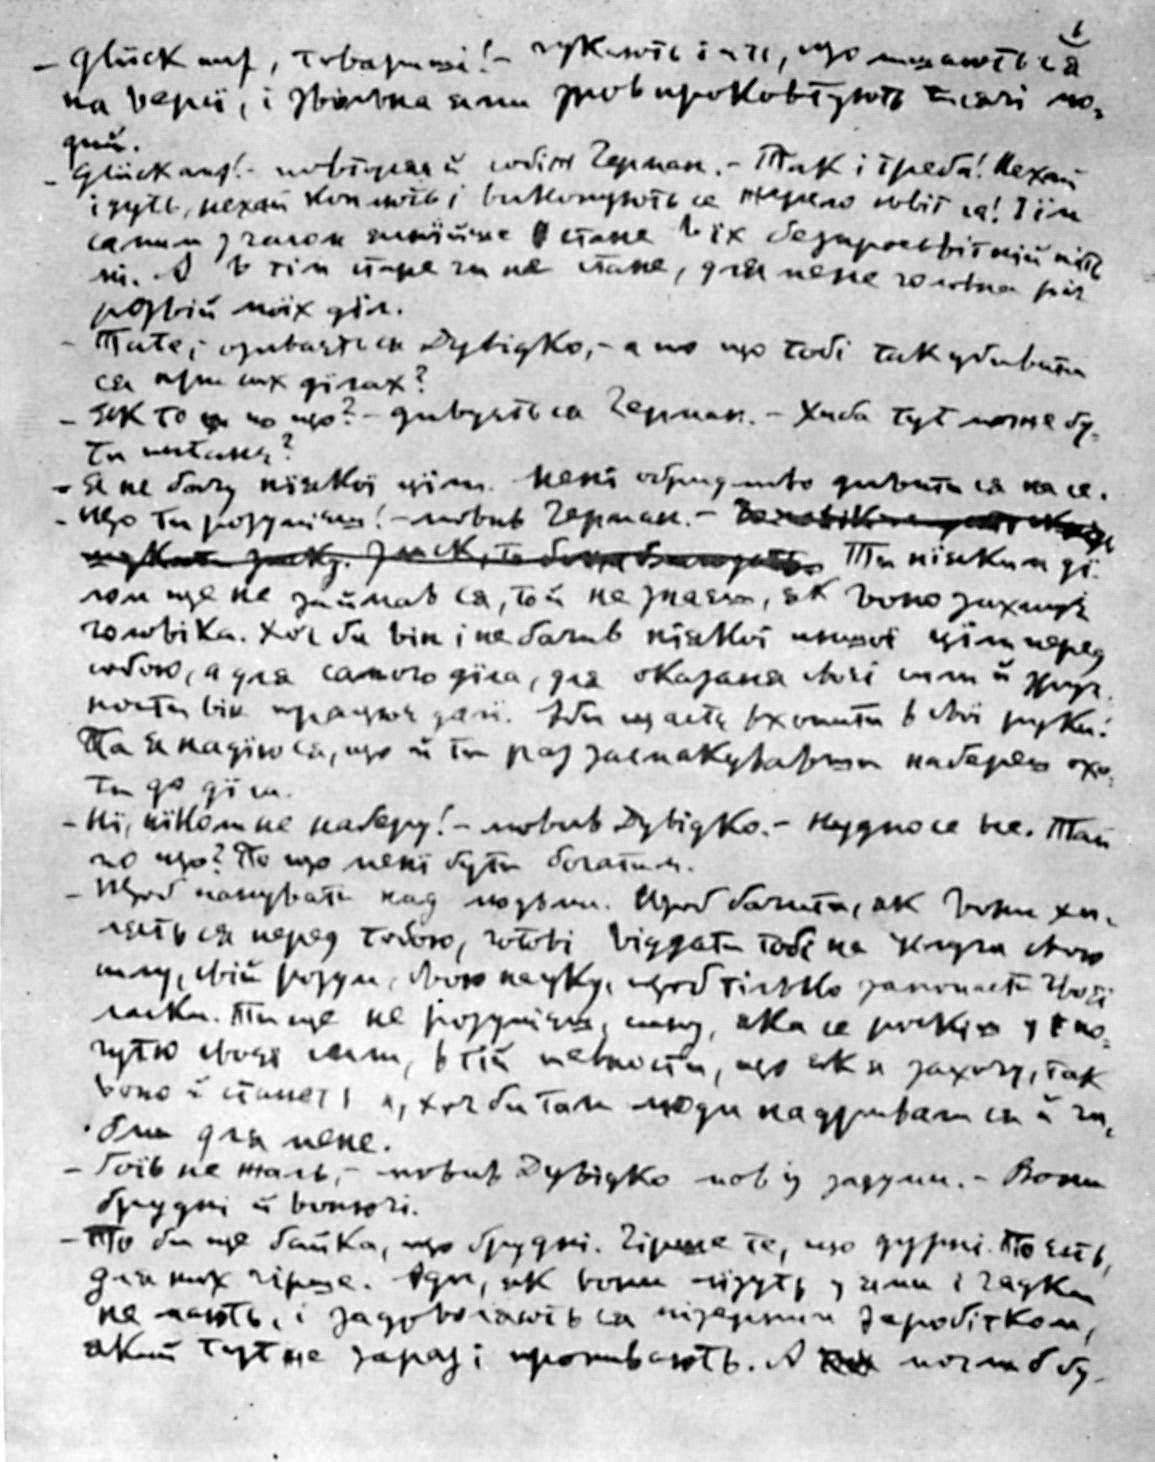 6
– Glück auf, товариші! – гукають і ті, що лишають ся
на версї, і звільна ями знов проковтують тисячі лю-
дий.
– Glück auf! – повторяв й собі Герман. – Так і треба! Нехай
ідуть, нехай копають і виконують се жерело
самим з часом стане в їх безпросвітній
ні. А в тім стане чи не стане, для мене головна річ
розвій моїх діл.
– Тату, – озиваєть ся Дувідко, – а по що тобі так убивати
ся при сих дїлах?
– Як то по що? – дивуєть ся Герман. – Хиба тут може бу-
ти питанє?
– Я не бачу нїякої цїли. Менї обридливо дивити ся на се.
– Що ти розумієш! – мовив Герман. –
Ти нїяким дї-
лом ще не займав ся, то й не знаєш, як воно захопує
чоловіка. Хоч би він і не бачив нїякої цїли перед
собою, а для самого дїла, для оказаня своєї сили й зруч-
ности він працює далї. Аби щастє вхопити в свої руки!
Та я надїю ся, що й ти раз засмакувавши набереш охо-
ти до дїла.
– Нї, нїколи не наберу! – мовив Дувідко. – Нудно се все. Тай
по що? По що менї бути богатим.
– Щоб панувати над людьми. Щоб бачити, як вони хи-
лять ся перед тобою, готові віддати тобі на услуги свою
силу, свій розум, свою науку, щоб тілько запопасти твоєї
ласки. Ти ще не розумієш, сину, яка се роскіш у по-
чутю своєї сили, в тій певности, що як я захочу, так
воно й станеть ся, хоч би там люди надривали ся й ги-
бли для мене.
– Їх не жаль, – мовив Дувідко мов із задуми. – Вони
брудні й вонючі.
– То би ще байка, що брудні. Гірше те, що дурні. То єсть,
для них гірше. Адже, як вони лїзуть у ями і гадки
не мають, і задоволяють ся мізерним заробітком,
який тут же зараз і пропивають. А могли б бу-